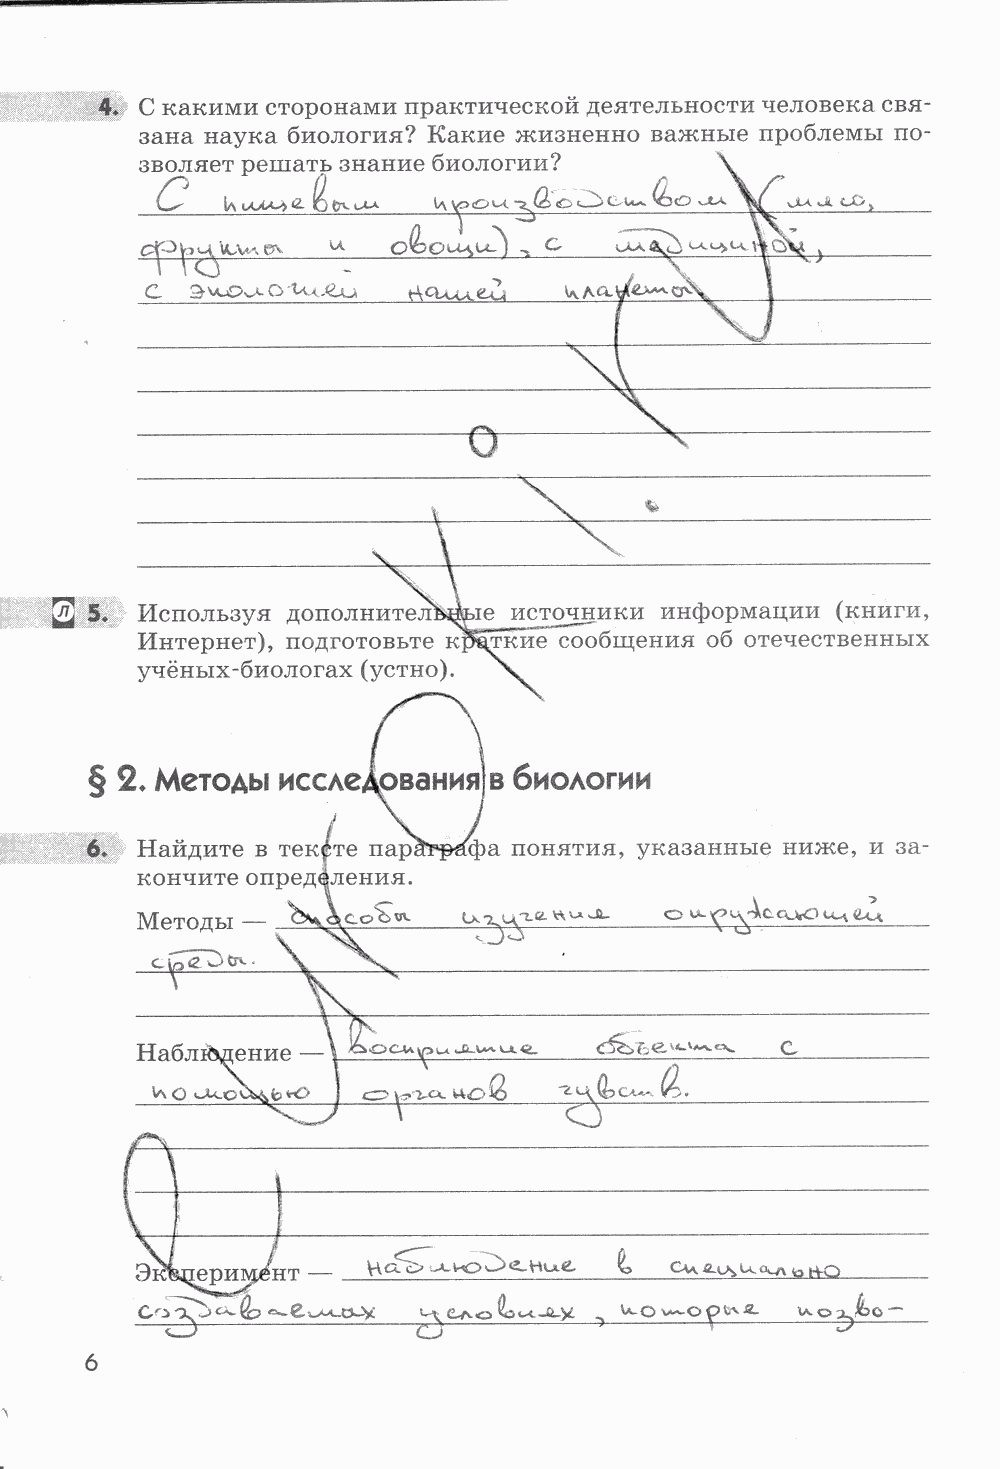 4. С какими сторонами практической деятельности человека свя-
зана наука биология? Какие жизненно важные проблемы по-
зволяет решать знание биологии?
С пищевым производством (мясо,
фрукты и овощи), с медициной,
с экологией нашей планеты.
Л 5. Используя дополнительные источники информации (книги,
Интернет), подготовьте краткие сообщения об отечественных
учёных-биологах (устно).
§ 2. Методы исследования в биологии
6. Найдите в тексте параграфа понятия, указанные ниже, и за-
кончите определения.
Методы — способы изучения окружающей
среды.
Наблюдение — восприятие объекта с
помощью органов чувств.
Эксперимент — наблюдение в специально
создаваемых условиях, которые позво-
6